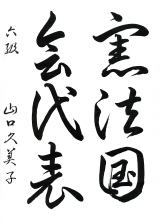 憲法国
会代表
六級 山口久美子